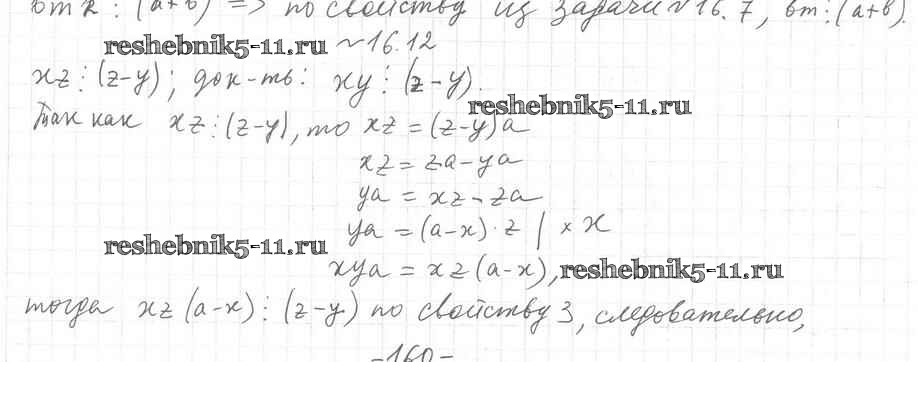 вт k ⋮ (a+b) => по свойству из задачи №16.7, вт⋮(a+b).
reshebnik5-11.ru №16.12
xz⋮(z-y); док-ть: xy⋮(z-y).
reshebnik5-11.ru
Так как xz⋮(z-y), то xz = (z-y)a
xz = za-ya
ya = xz-za
ya = (a-x)·z | × x
reshebnik5-11.ru
xya = xz(a-x), reshebnik5-11.ru
тогда xz(a-x)⋮(z-y) по свойству 3, следовательно,
-160-